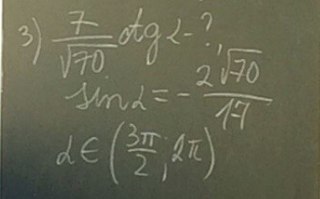 3) 7/√70 ctg α - ?,
sin α = - 2√70/17
α ∈ (3π/2; 2π)